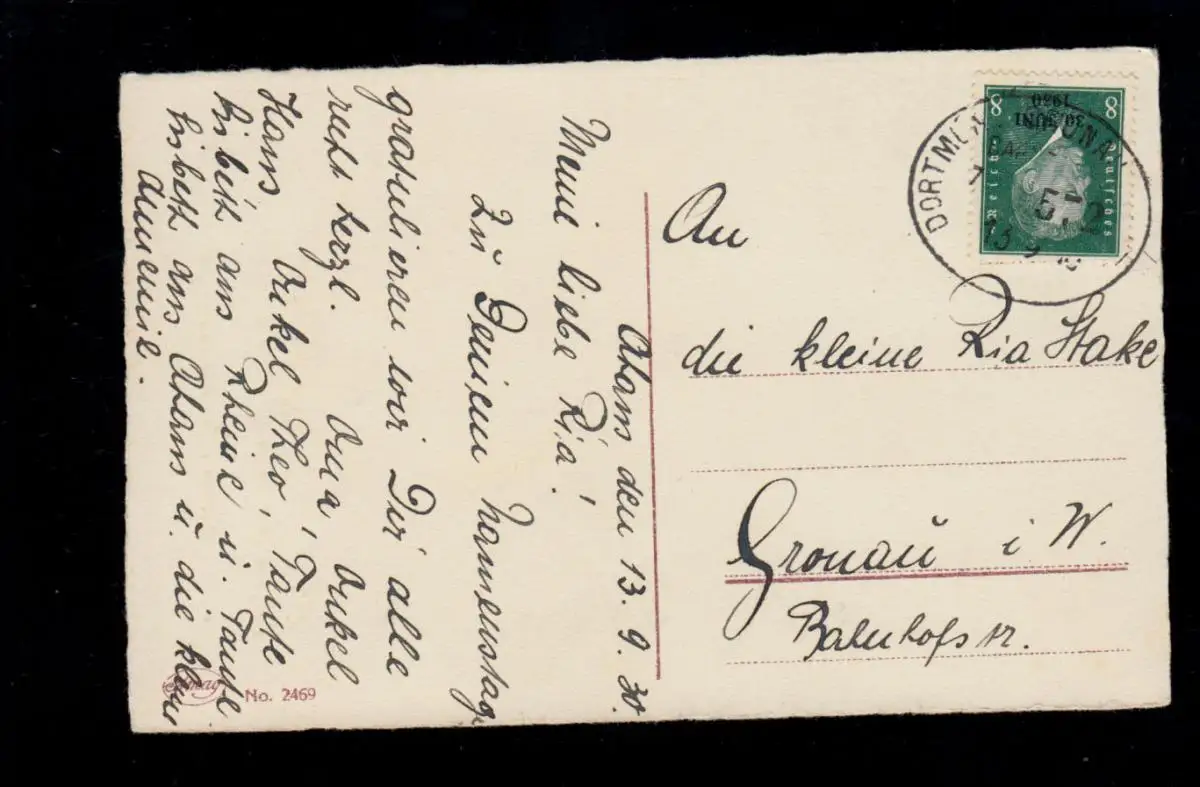 Aham den 13. 9. 30.
Meine liebe Ria!
Zu Deinem Namenstag
gratulieren wir Dir alle
recht herzl. Oma, Onkel
Hans, Onkel Theo, Tante
Lisbeth aus Rheine u. Tante
Lisbeth aus Aham u. die kleine
Annemie.
An
die kleine Ria Stake
Gronau i W.
Bahnhofstr.
No. 2469
DORTMUND GRONAU
572
13 9 30
Deutsches Reich
8 8
30. JUNI
1930